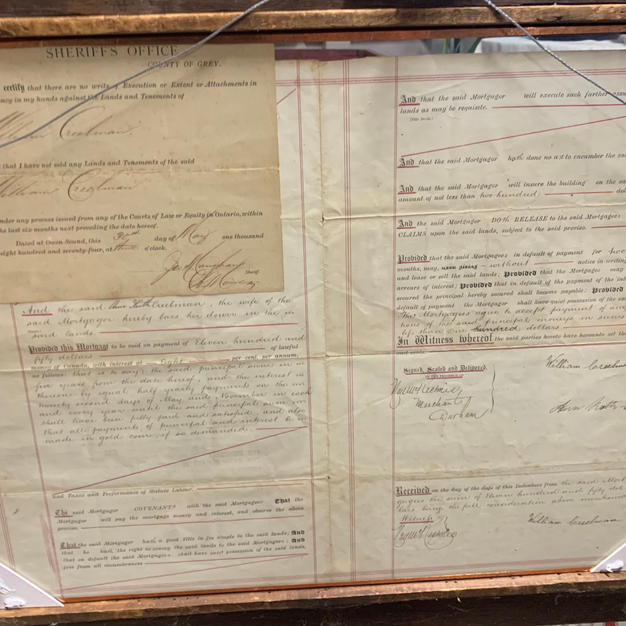 SHERIFF'S OFFICE
COUNTY OF GREY.
certify that there are no writs of Execution or Extent or Attachments in
in my hands against the Lands and Tenements of
William Creelman
that I have not sold any Lands and Tenements of the said
William Creelman
under any process issued from any of the Courts of Law or Equity in Ontario, within
the last six months next preceding the date hereof.
Dated at Owen-Sound, this day of May one thousand
eight hundred and seventy-four, at o'clock.
And the said Creelman, the wife of the
said Mortgagor hereby bars her dower in the
said lands.
Provided this Mortgage to be void on payment of Eleven hundred and
fifty dollars of lawful
money of Canada, with interest at Eight per cent. per annum,
as follows: that is to say: the said principal sum in
five years from the date hereof, and the interest
thereon by equal half yearly payments on the
twenty second days of May and November in each
and every year until the said principal sum
shall have been fully paid and satisfied, and also
that all payments of principal and interest to be
made in gold coin if so demanded.
And Taxes and Performance of Statute Labour.
The said Mortgagor COVENANTS with the said Mortgagees; That the
Mortgagor will pay the mortgage money and interest, and observe the above
proviso.
That the said Mortgagor hath a good title in fee simple to the said lands; And
that he hath the right to convey the said lands to the said Mortgagees; And
that on default the Mortgagees shall have quiet possession of the said lands,
free from all incumbrances
And that the said Mortgagor will execute such further
lands as may be requisite.
And that the said Mortgagor hath done no act to encumber the
And that the said Mortgagor will insure the building on the
amount of not less than two hundred
And the said Mortgagor DOTH RELEASE to the said Mortgagees
CLAIMS upon the said lands, subject to the said proviso.
Provided that the said Mortgagees in default of payment for two
months, may, without notice in writing
and lease or sell the said lands; Provided that the Mortgagee may
arrears of interest; Provided that in default of the payment of the
secured the principal hereby secured shall become payable; Provided
default of payment the Mortgagor shall have quiet possession of the
The Mortgagees agree to accept payment of any
of the said principal
less than One hundred dollars
In Witness whereof the said parties hereto have hereunto set
Signed, Sealed and Delivered
IN THE PRESENCE OF
Merchant
Durham
William Creelman
Received on the day of the date of this Indenture from the said
the sum of Eleven hundred and fifty
being the full consideration above
Witness
William Creelman